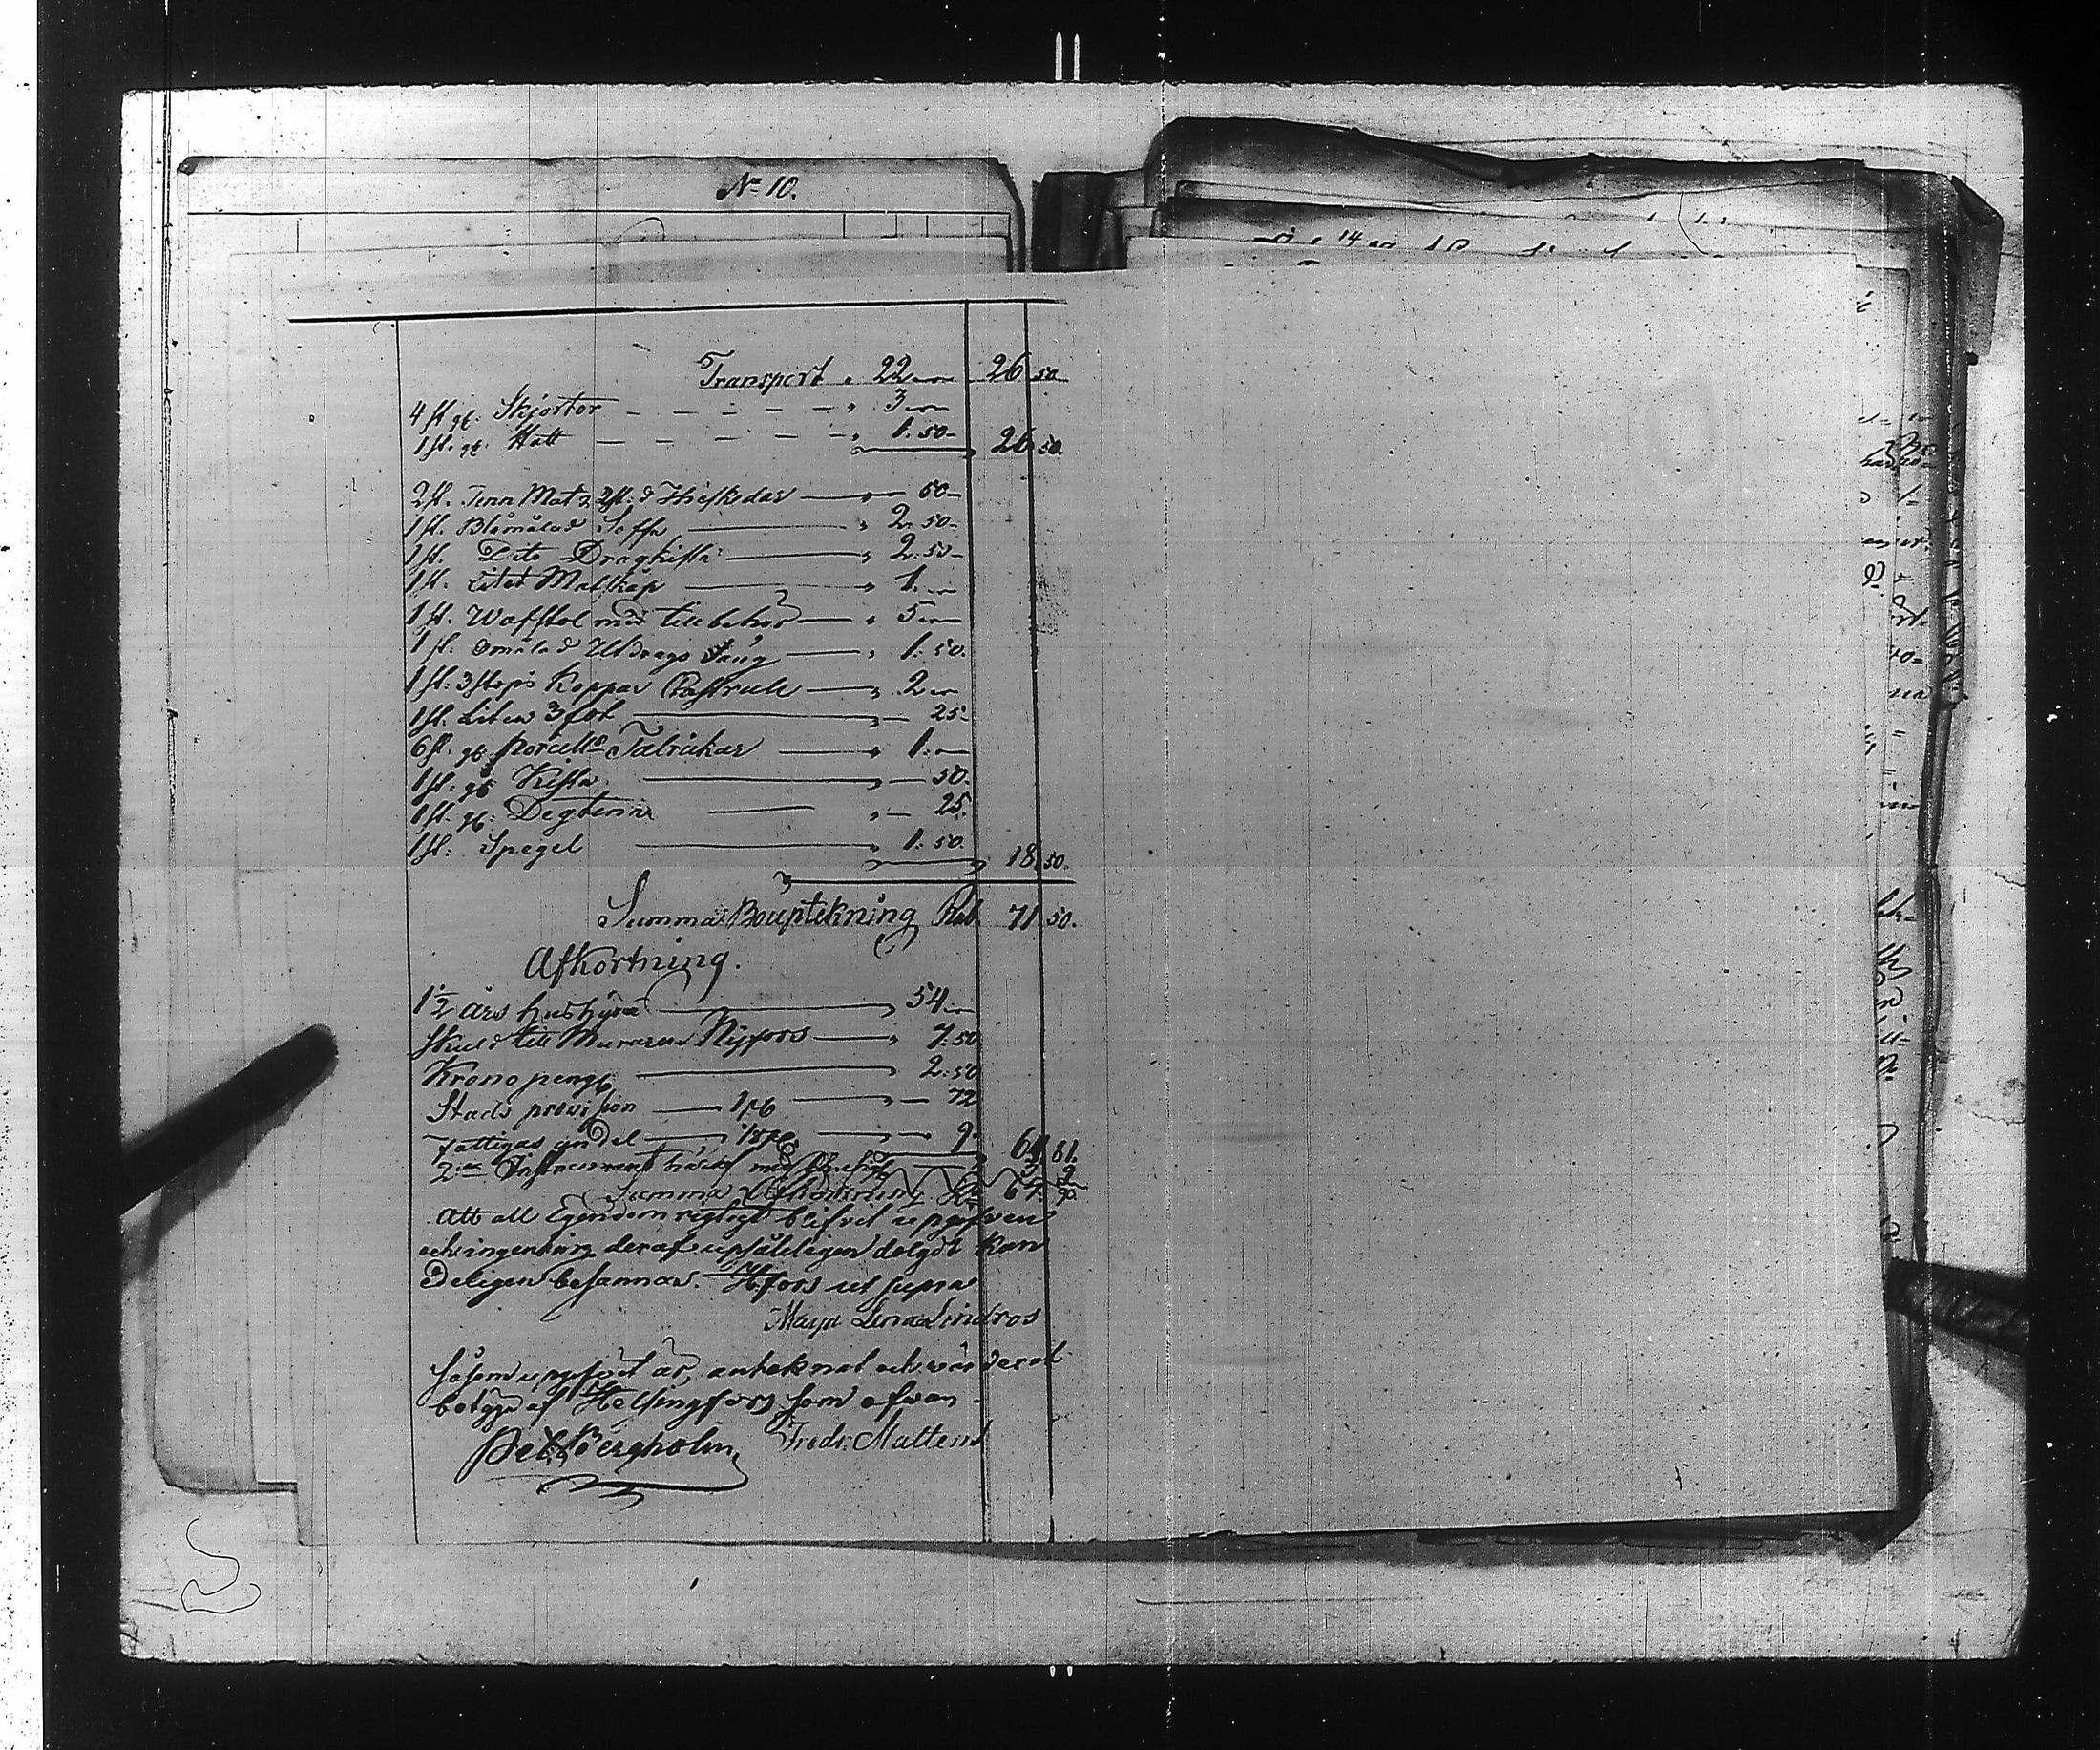 No 10.
Transport " 22 — 26 50
4 st. gl. Skjortor — — — — — " 3 —
1 st. gl. Hatt — — — — — " 1. 50 — 26 50.
2 st. Tenn Mat & 2 st. d:o Theskedar — " — 50 —
1 st. Blåmålad Soffa — " 2. 50 —
1 st. Dito Dragkista — " 2. 50 —
1 st. Litet Matskåp — " 1. —
1 st. Wäfstol med tillbehör — " 5 —
1 st. Omålad Utdrags Säng — " 1. 50.
1 st. 3 stops Koppar Castrull — " 2 —
1 st. Liten 3 fot — " — 25.
6 st. gl. porcell:s Talrickar — " 1. —
1 st. gl. Kista — " — 50.
1 st. gl. Degtina — " — 25.
1 st. Spegel — " 1. 50. 18 50.
Summa Bouptekning Rub 71. 50.
Afkortning.
1 1/2 Års hushyra — " 54 —
Skuld till Muraren Nyfors — " 7. 50
Krono peng — " 2. 50
Stads provision — " — 72
Fattigas andel — " — 9. 64 81.
2
Summa Afkortning 67. 90.
Att all Egendom rigtigt blifvit upgifven
och ingenting deraf upsåteligen dolgdt kan
edeligen besannas. H:fors ut supra
Maja Lena Lindros
Såsom upgifvit är, anteknat och värderat
betyga af Helsingfors som ofwan.
Pet. Bergholm Fredr. Mattens